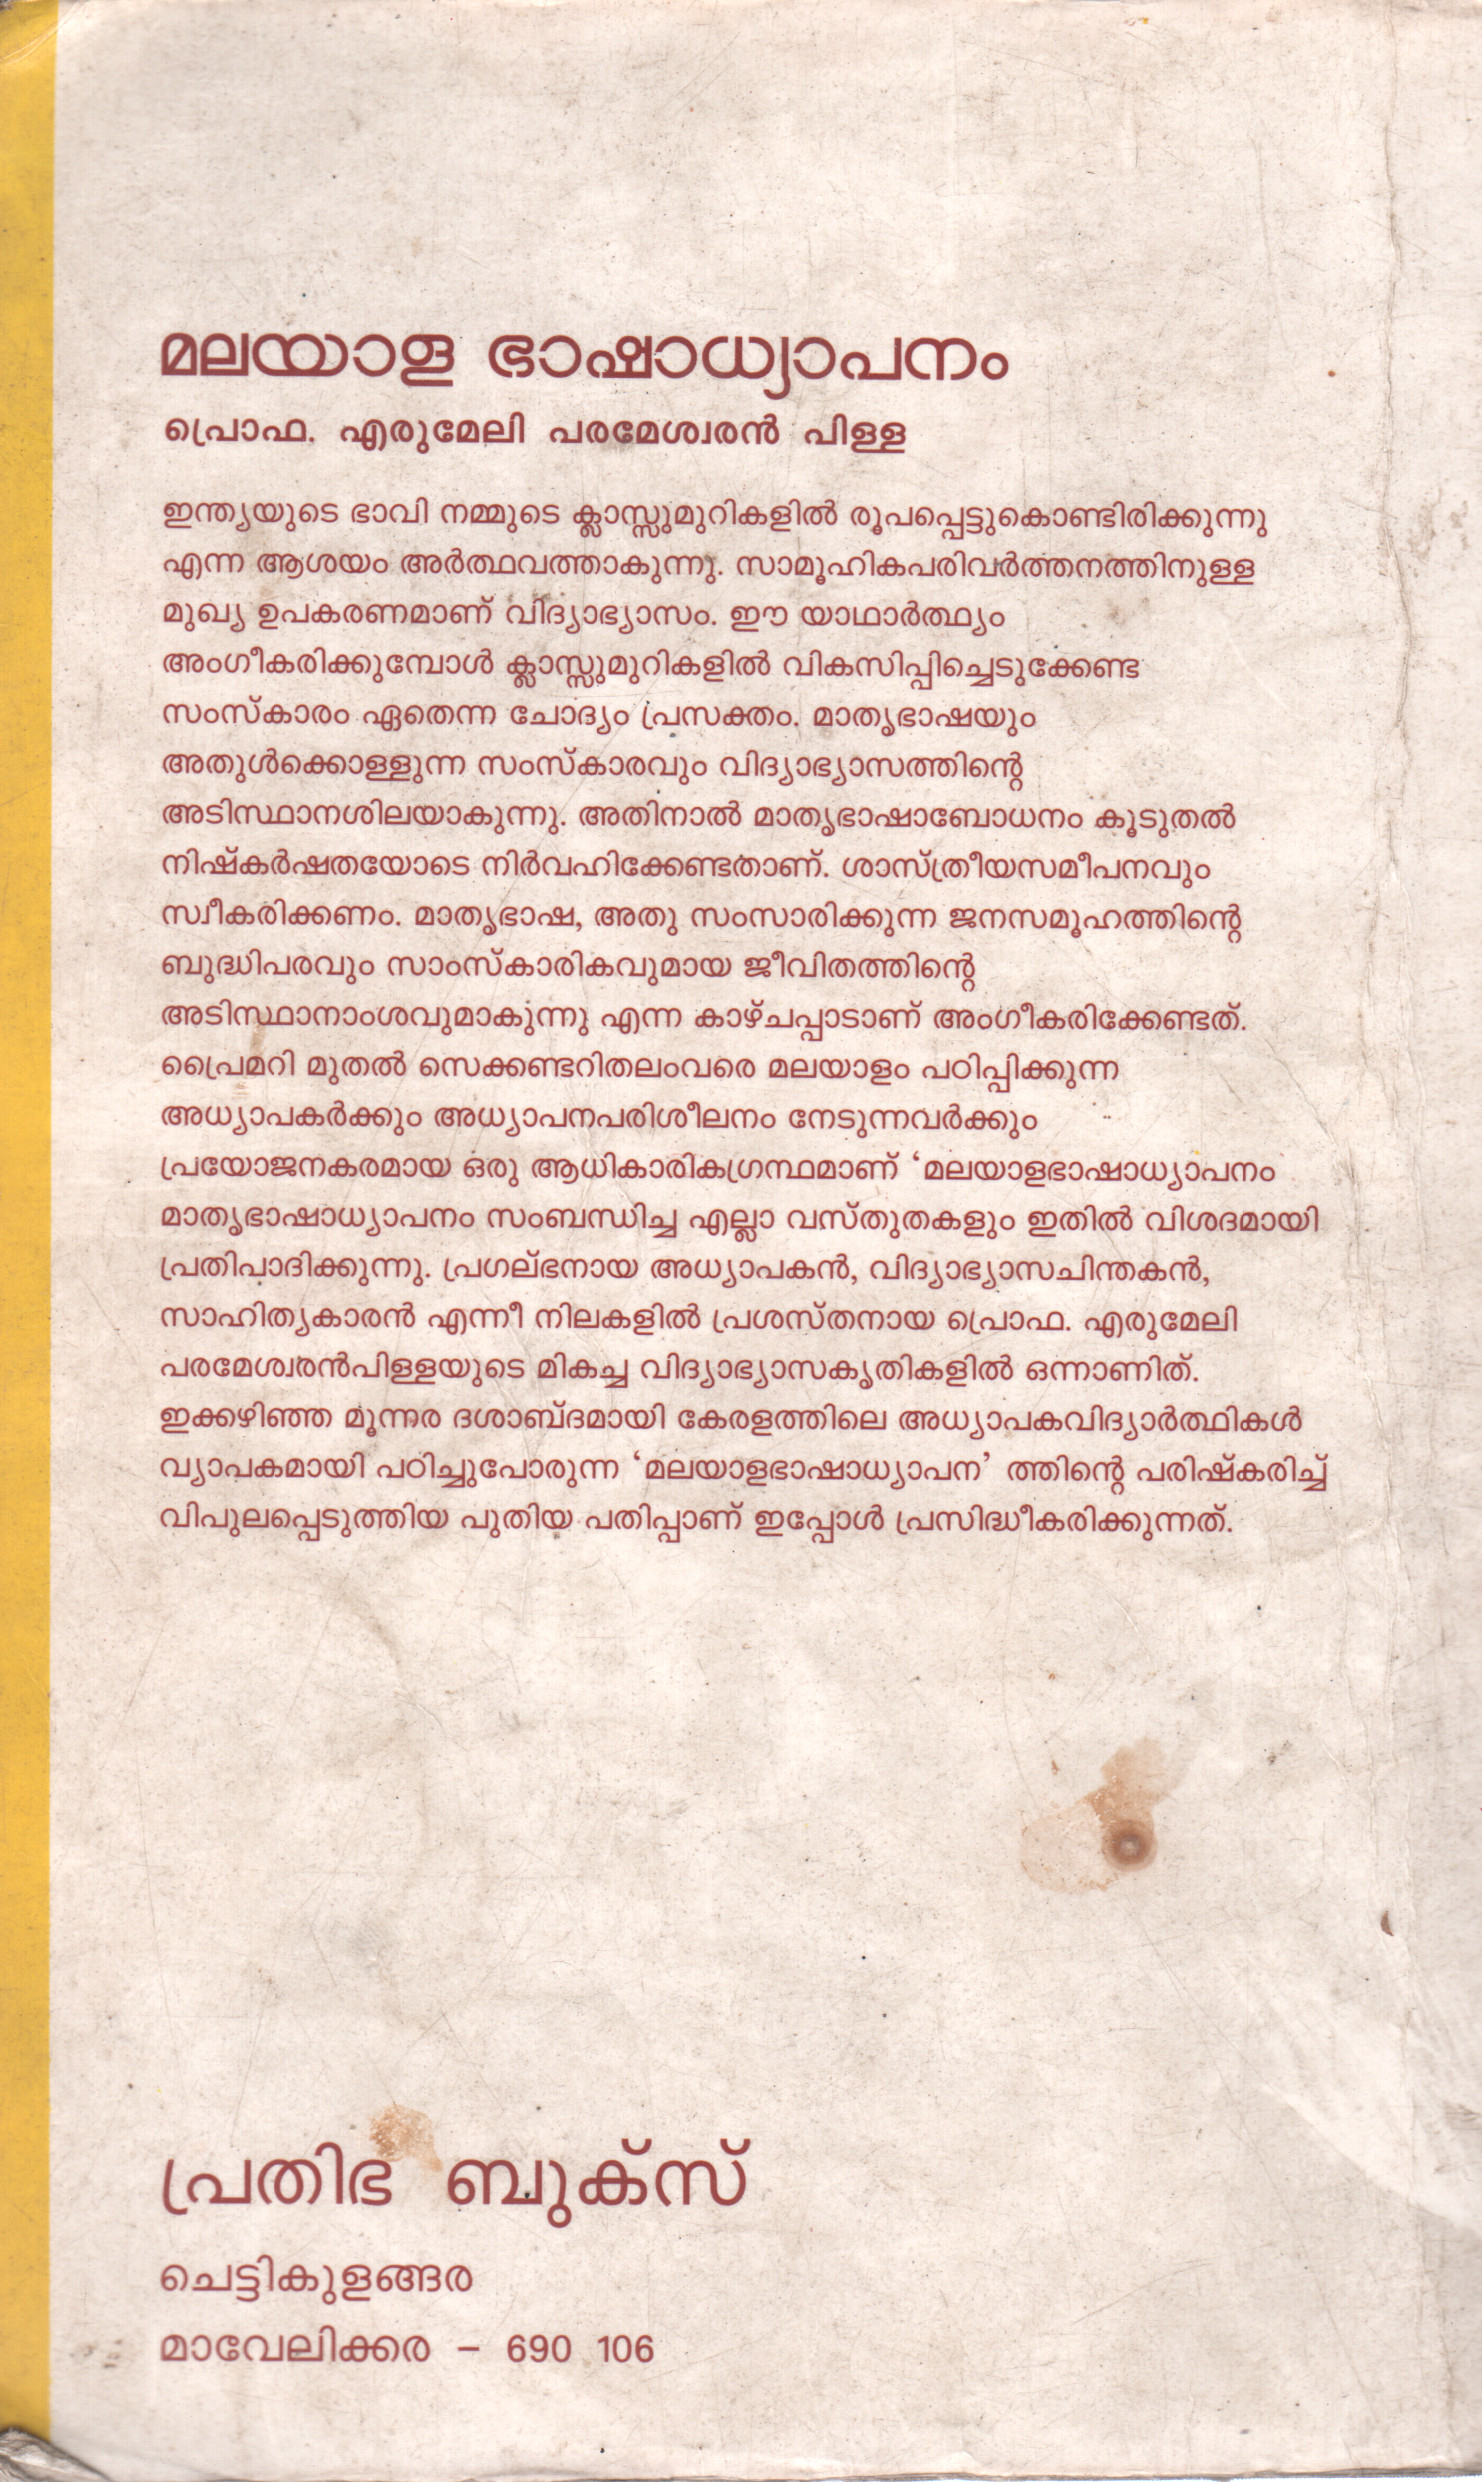 മലയാള ഭാഷാധ്യാപനം
പ്രൊഫ. എരുമേലി പരമേശ്വരൻ പിള്ള
ഇന്ത്യയുടെ ഭാവി നമ്മുടെ ക്ലാസ്സുമുറികളിൽ രൂപപ്പെട്ടുകൊണ്ടിരിക്കുന്നു
എന്ന ആശയം അർത്ഥവത്താകുന്നു. സാമൂഹികപരിവർത്തനത്തിനുള്ള
മുഖ്യ ഉപകരണമാണ് വിദ്യാഭ്യാസം. ഈ യാഥാർത്ഥ്യം
അംഗീകരിക്കുമ്പോൾ ക്ലാസ്സുമുറികളിൽ വികസിപ്പിച്ചെടുക്കേണ്ട
സംസ്കാരം ഏതെന്ന ചോദ്യം പ്രസക്തം. മാതൃഭാഷയും
അതുൾക്കൊള്ളുന്ന സംസ്കാരവും വിദ്യാഭ്യാസത്തിന്റെ
അടിസ്ഥാനശിലയാകുന്നു. അതിനാൽ മാതൃഭാഷാബോധനം കൂടുതൽ
നിഷ്കർഷതയോടെ നിർവഹിക്കേണ്ടതാണ്. ശാസ്ത്രീയസമീപനവും
സ്വീകരിക്കണം. മാതൃഭാഷ, അതു സംസാരിക്കുന്ന ജനസമൂഹത്തിന്റെ
ബുദ്ധിപരവും സാംസ്കാരികവുമായ ജീവിതത്തിന്റെ
അടിസ്ഥാനാംശവുമാകുന്നു എന്ന കാഴ്ചപ്പാടാണ് അംഗീകരിക്കേണ്ടത്.
പ്രൈമറി മുതൽ സെക്കണ്ടറിതലംവരെ മലയാളം പഠിപ്പിക്കുന്ന
അധ്യാപകർക്കും അധ്യാപനപരിശീലനം നേടുന്നവർക്കും
പ്രയോജനകരമായ ഒരു ആധികാരികഗ്രന്ഥമാണ് ‘മലയാളഭാഷാധ്യാപനം
മാതൃഭാഷാധ്യാപനം സംബന്ധിച്ച എല്ലാ വസ്തുതകളും ഇതിൽ വിശദമായി
പ്രതിപാദിക്കുന്നു. പ്രഗല്ഭനായ അധ്യാപകൻ, വിദ്യാഭ്യാസചിന്തകൻ,
സാഹിത്യകാരൻ എന്നീ നിലകളിൽ പ്രശസ്തനായ പ്രൊഫ. എരുമേലി
പരമേശ്വരൻപിള്ളയുടെ മികച്ച വിദ്യാഭ്യാസകൃതികളിൽ ഒന്നാണിത്.
ഇക്കഴിഞ്ഞ മൂന്നര ദശാബ്ദമായി കേരളത്തിലെ അധ്യാപകവിദ്യാർത്ഥികൾ
വ്യാപകമായി പഠിച്ചുപോരുന്ന ‘മലയാളഭാഷാധ്യാപന’ ത്തിന്റെ പരിഷ്കരിച്ച്
വിപുലപ്പെടുത്തിയ പുതിയ പതിപ്പാണ് ഇപ്പോൾ പ്രസിദ്ധീകരിക്കുന്നത്.
പ്രതിഭ ബുക്സ്
ചെട്ടികുളങ്ങര
മാവേലിക്കര – 690 106